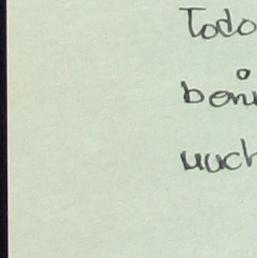 Todo
boni
much